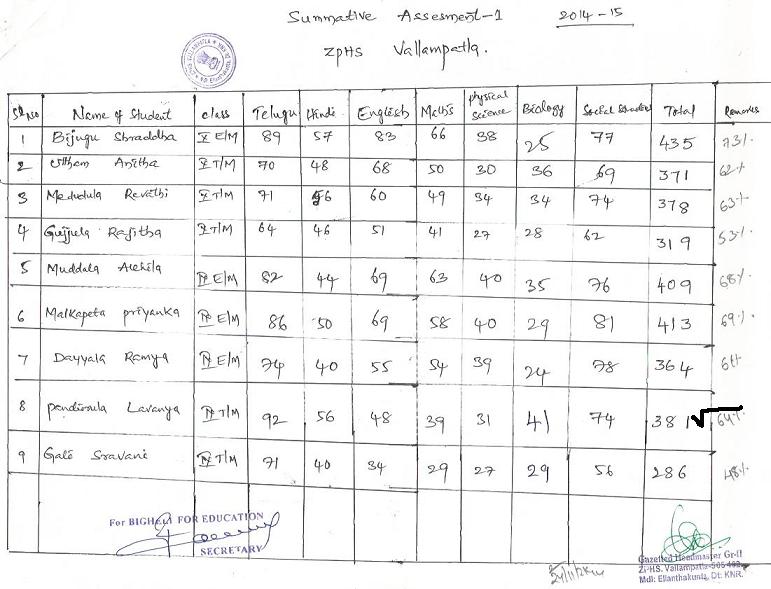 Summative Assesment-1 2014-15
ZPHS Vallampatla.
Sl No Name of Student class Telugu Hindi English Maths physical science Biology Social Studies Total Remarks
1 Bijugu Shraddha X E/M 89 57 83 66 38 25 77 435 73%
2 Anitha X T/M 70 48 68 50 30 36 69 371 62%
3 Medudula Revathi X T/M 71 56 60 49 34 34 74 378 63%
4 Gujjula Rajitha X T/M 64 46 51 41 27 28 62 319 53%
5 Muddala Akhila IX E/M 82 44 69 63 40 35 76 409 68%
6 Malkapeta priyanka IX E/M 86 50 69 58 40 29 81 413 69%
7 Dayyala Ramya IX E/M 74 40 55 54 39 24 78 364 61%
8 Lavanya IX T/M 92 56 48 39 31 41 74 381 64%
9 Sravani IX T/M 71 40 34 29 27 29 56 286 48%
For BIGHELP FOR EDUCATION
SECRETARY
Gazetted Headmaster Gr-II
ZPHS. Vallampatla-505 402.
Mdl: Ellanthakunta, Dt: KNR.